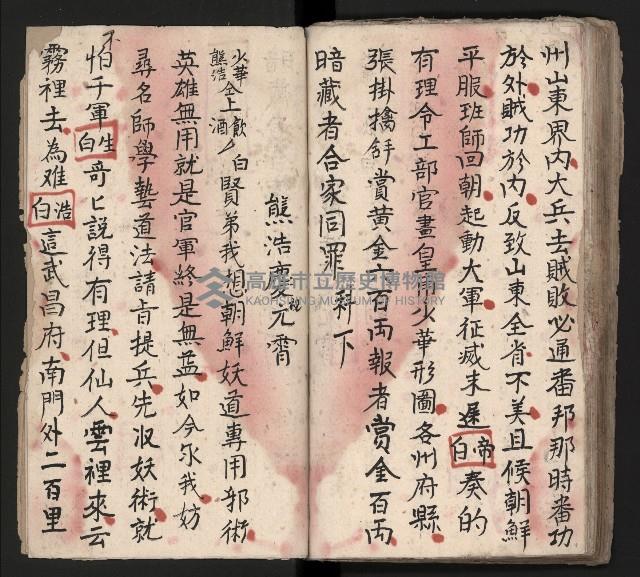 州山東界內大兵去賊敗必通番邦那時番功
於外賊功於內反致山東全省不美且候朝鮮
平服班師回朝起動大軍征威未遲帝白奏的
有理令工部官畫皇甫少華形圖各州府縣
張掛擒舒賞黃金六百両報者賞金百両
暗藏者合家同罪科下
熊浩慶元霄
少華熊浩仝上飲酒白賢弟我想朝鮮妖道專用邪術
英雄無用就是官軍終是無益如今尔我妨
尋名師學藝道法請旨提兵先収妖術就
不怕千軍生白哥匕說得有理但仙人雲裡來云
霧裡去為难浩白這武昌府南門外二百里
高雄市立歷史博物館
KAOHSIUNG MUSEUM OF HISTORY